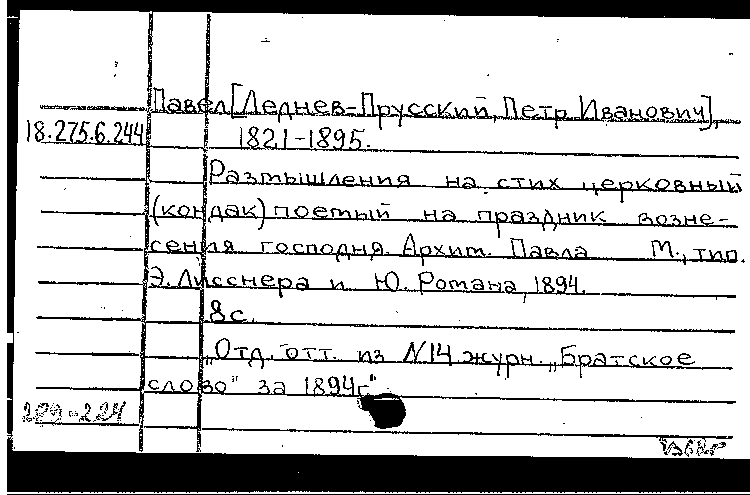 Павел [Леднев-Прусский, Петр Иванович],
18.275.6.244 1821-1895.
Размышления на стих церковный
(кондак) поемый на праздник возне-
сения господня. Архим. Павла М., тип.
Э. Лисснера и Ю. Романа, 1894.
8с.
„Отд. отт. из N14 журн. „Братское
слово" за 1894г"